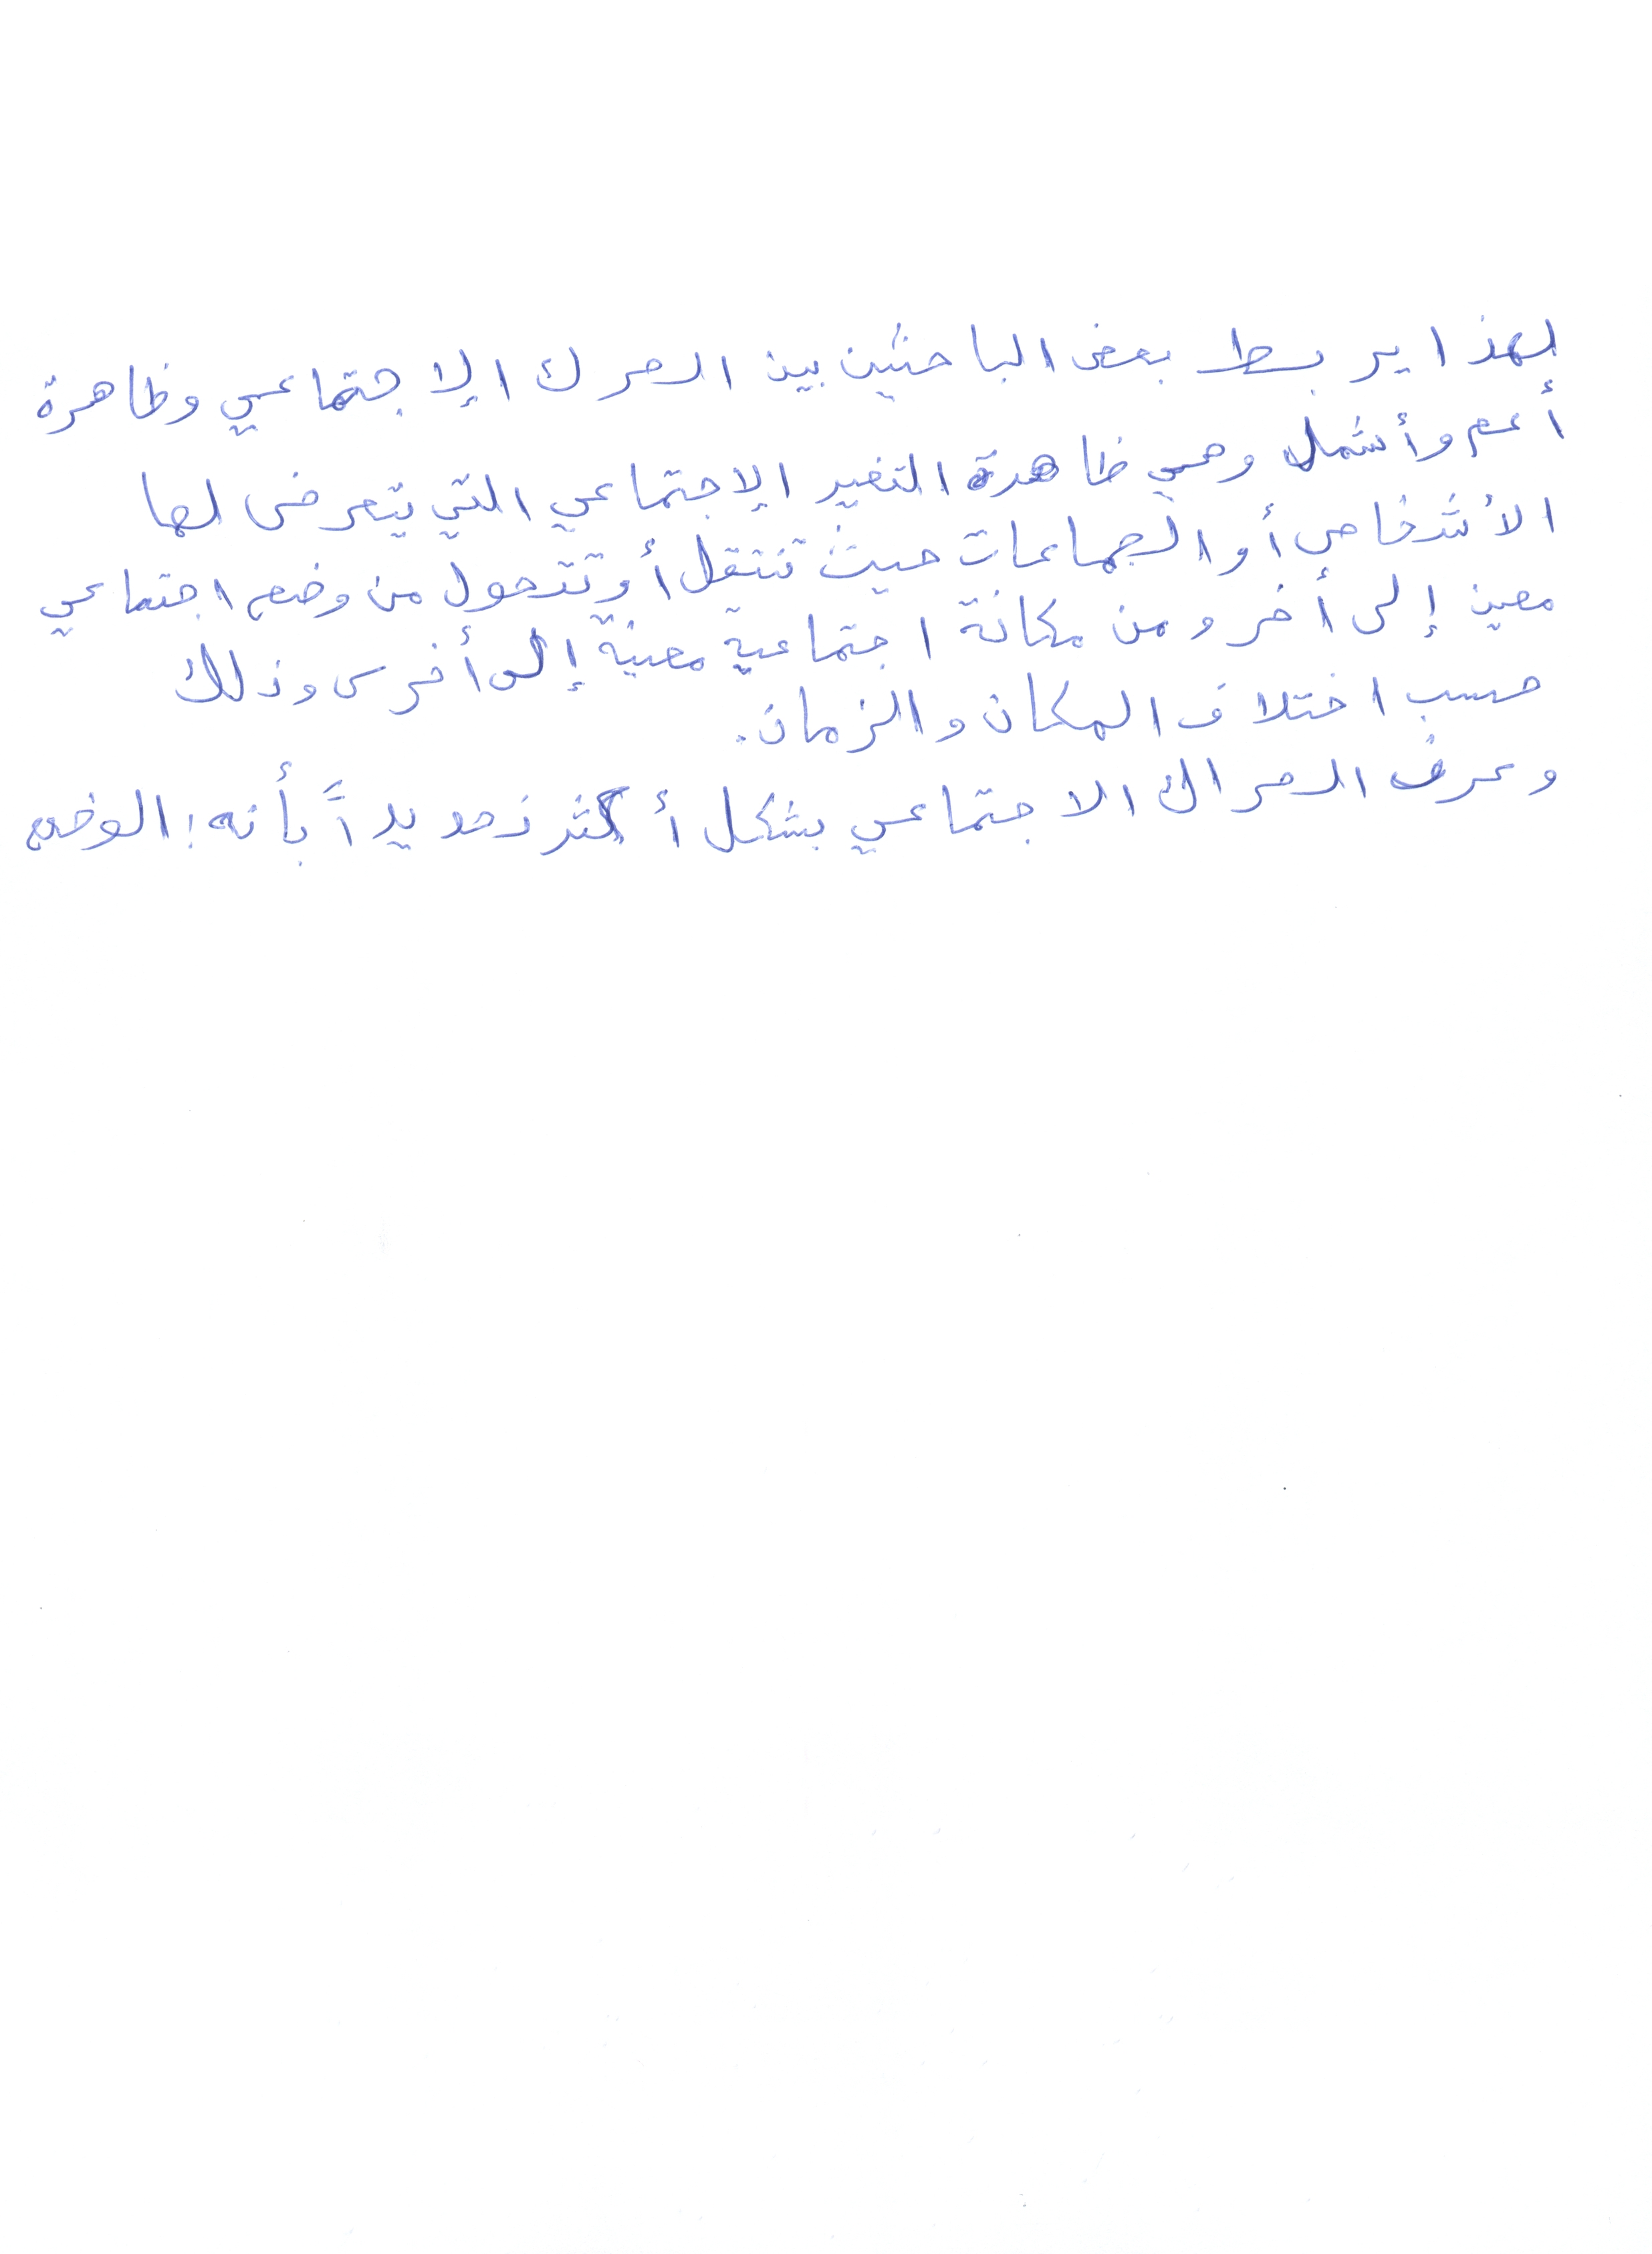 لهذا يربط بعض الباحثين بين الحرك الإجتماعي وظاهرة
أعم وأشمل وهي ظاهرة التغير الإجتماعي التي يتعرض لها
الأشخاص أو الجماعات حيث تنتقل أو تتحول من وضع اجتماعي
معين إلى أخر ومن مكانة اجتماعية معينة إلى أخرى وذلك
حسب اختلاف المكان والزمان.
وعرف الحراك الاجتماعي بشكل أكثر تحديداً بأنه: الوضع